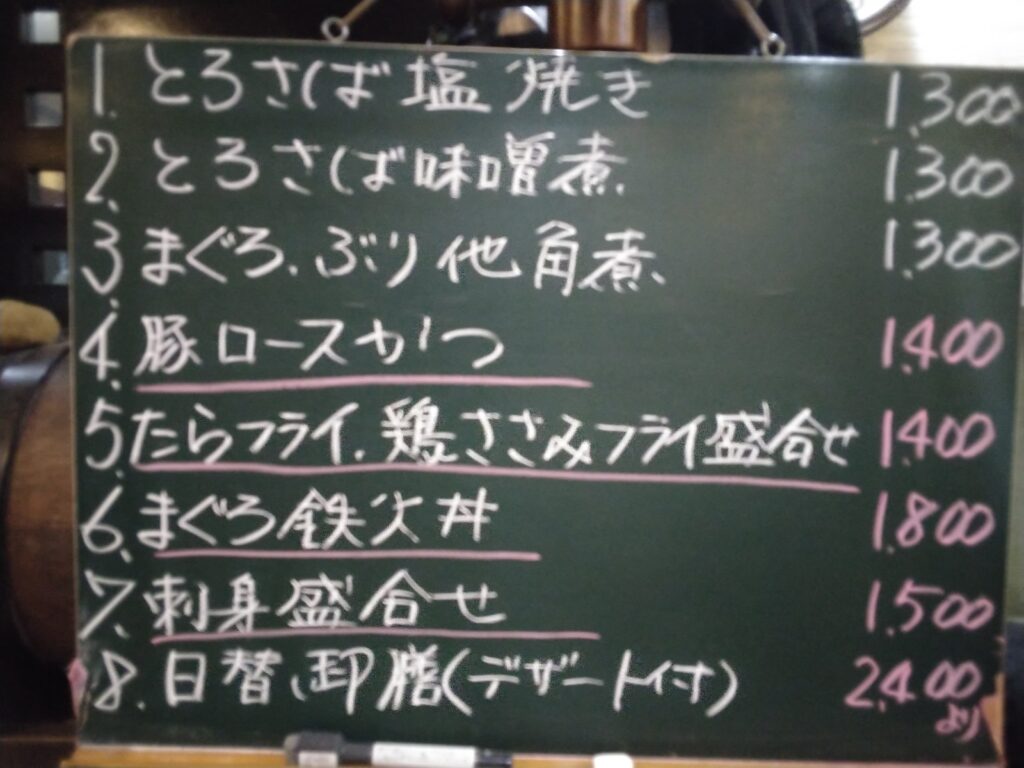 1. とろさば塩焼き 1.300
2. とろさば味噌煮 1.300
3. まぐろ、ぶり他角煮 1.300
4. 豚ロースかつ 1.400
5. たらフライ、鶏ささみフライ盛合せ 1.400
6. まぐろ鉄火丼 1.800
7. 刺身盛合せ 1.500
8. 日替、御膳(デザート付) 2.400
より